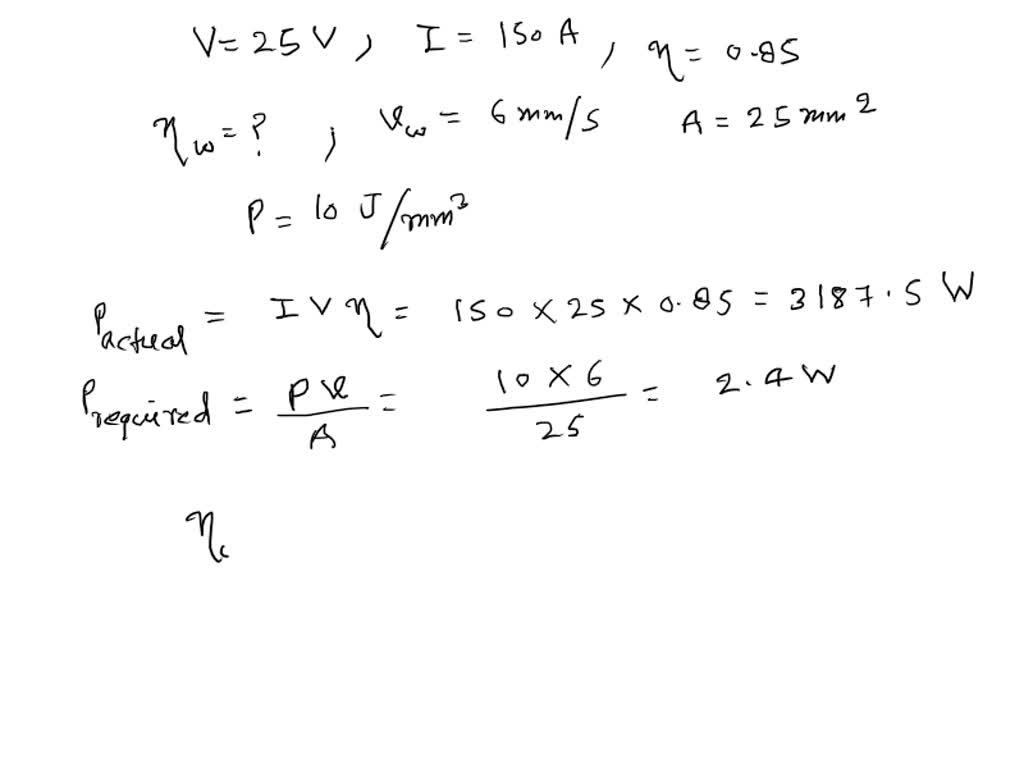 V = 25 V, I = 150 A, η = 0.85
η_w = ?, v_w = 6 mm/s A = 25 mm²
P = 10 J/mm³
P_actual = I V η = 150 × 25 × 0.85 = 3187.5 W
P_required = Pv/A = 10 × 6/25 = 2.4 W
η